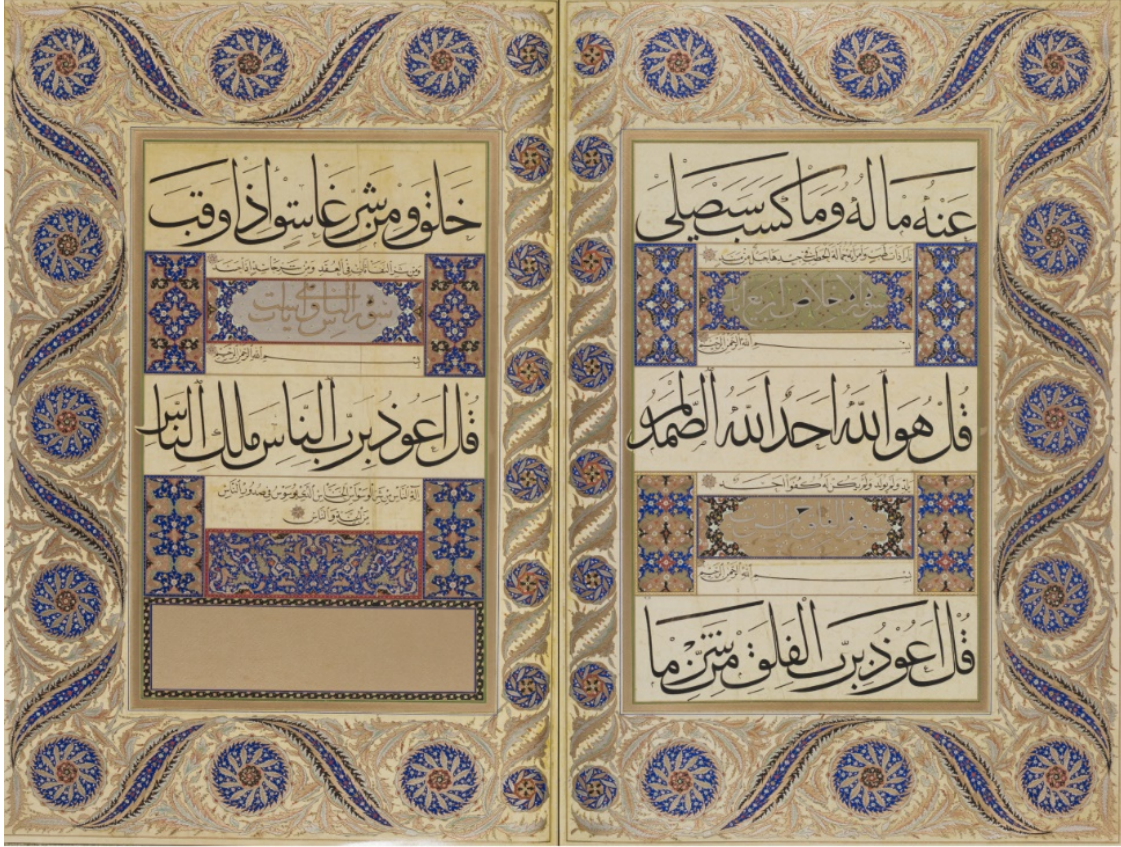 عَنْهُ مَا لَهُ وَمَا كَسَبَ سَيَصْلَى
نارا ذات لهب وامرأته حمالة الحطب في جيدها حبل من مسد
سورة الاخلاص اربع ايات
بسم الله الرحمن الرحيم
قُلْ هُوَ اللهُ اَحَدٌ اَللهُ الصَّمَدُ لَمْ
يلد ولم يولد ولم يكن له كفوا احد
سورة الفلق
بسم الله الرحمن الرحيم
قُلْ اَعُوذُ بِرَبِّ الْفَلَقِ مِنْ شَرِّ مَا
خَلَقَ وَمِنْ شَرِّ غَاسِقٍ اِذَا وَقَبَ
ومن شر النفاثات في العقد ومن شر حاسد اذا حسد
سورة الناس ايات
بسم الله الرحمن الرحيم
قُلْ اَعُوذُ بِرَبِّ النَّاسِ مَلِكِ النَّاسِ
اله الناس من شر الوسواس الخناس الذي يوسوس في صدور الناس
من الجنة والناس